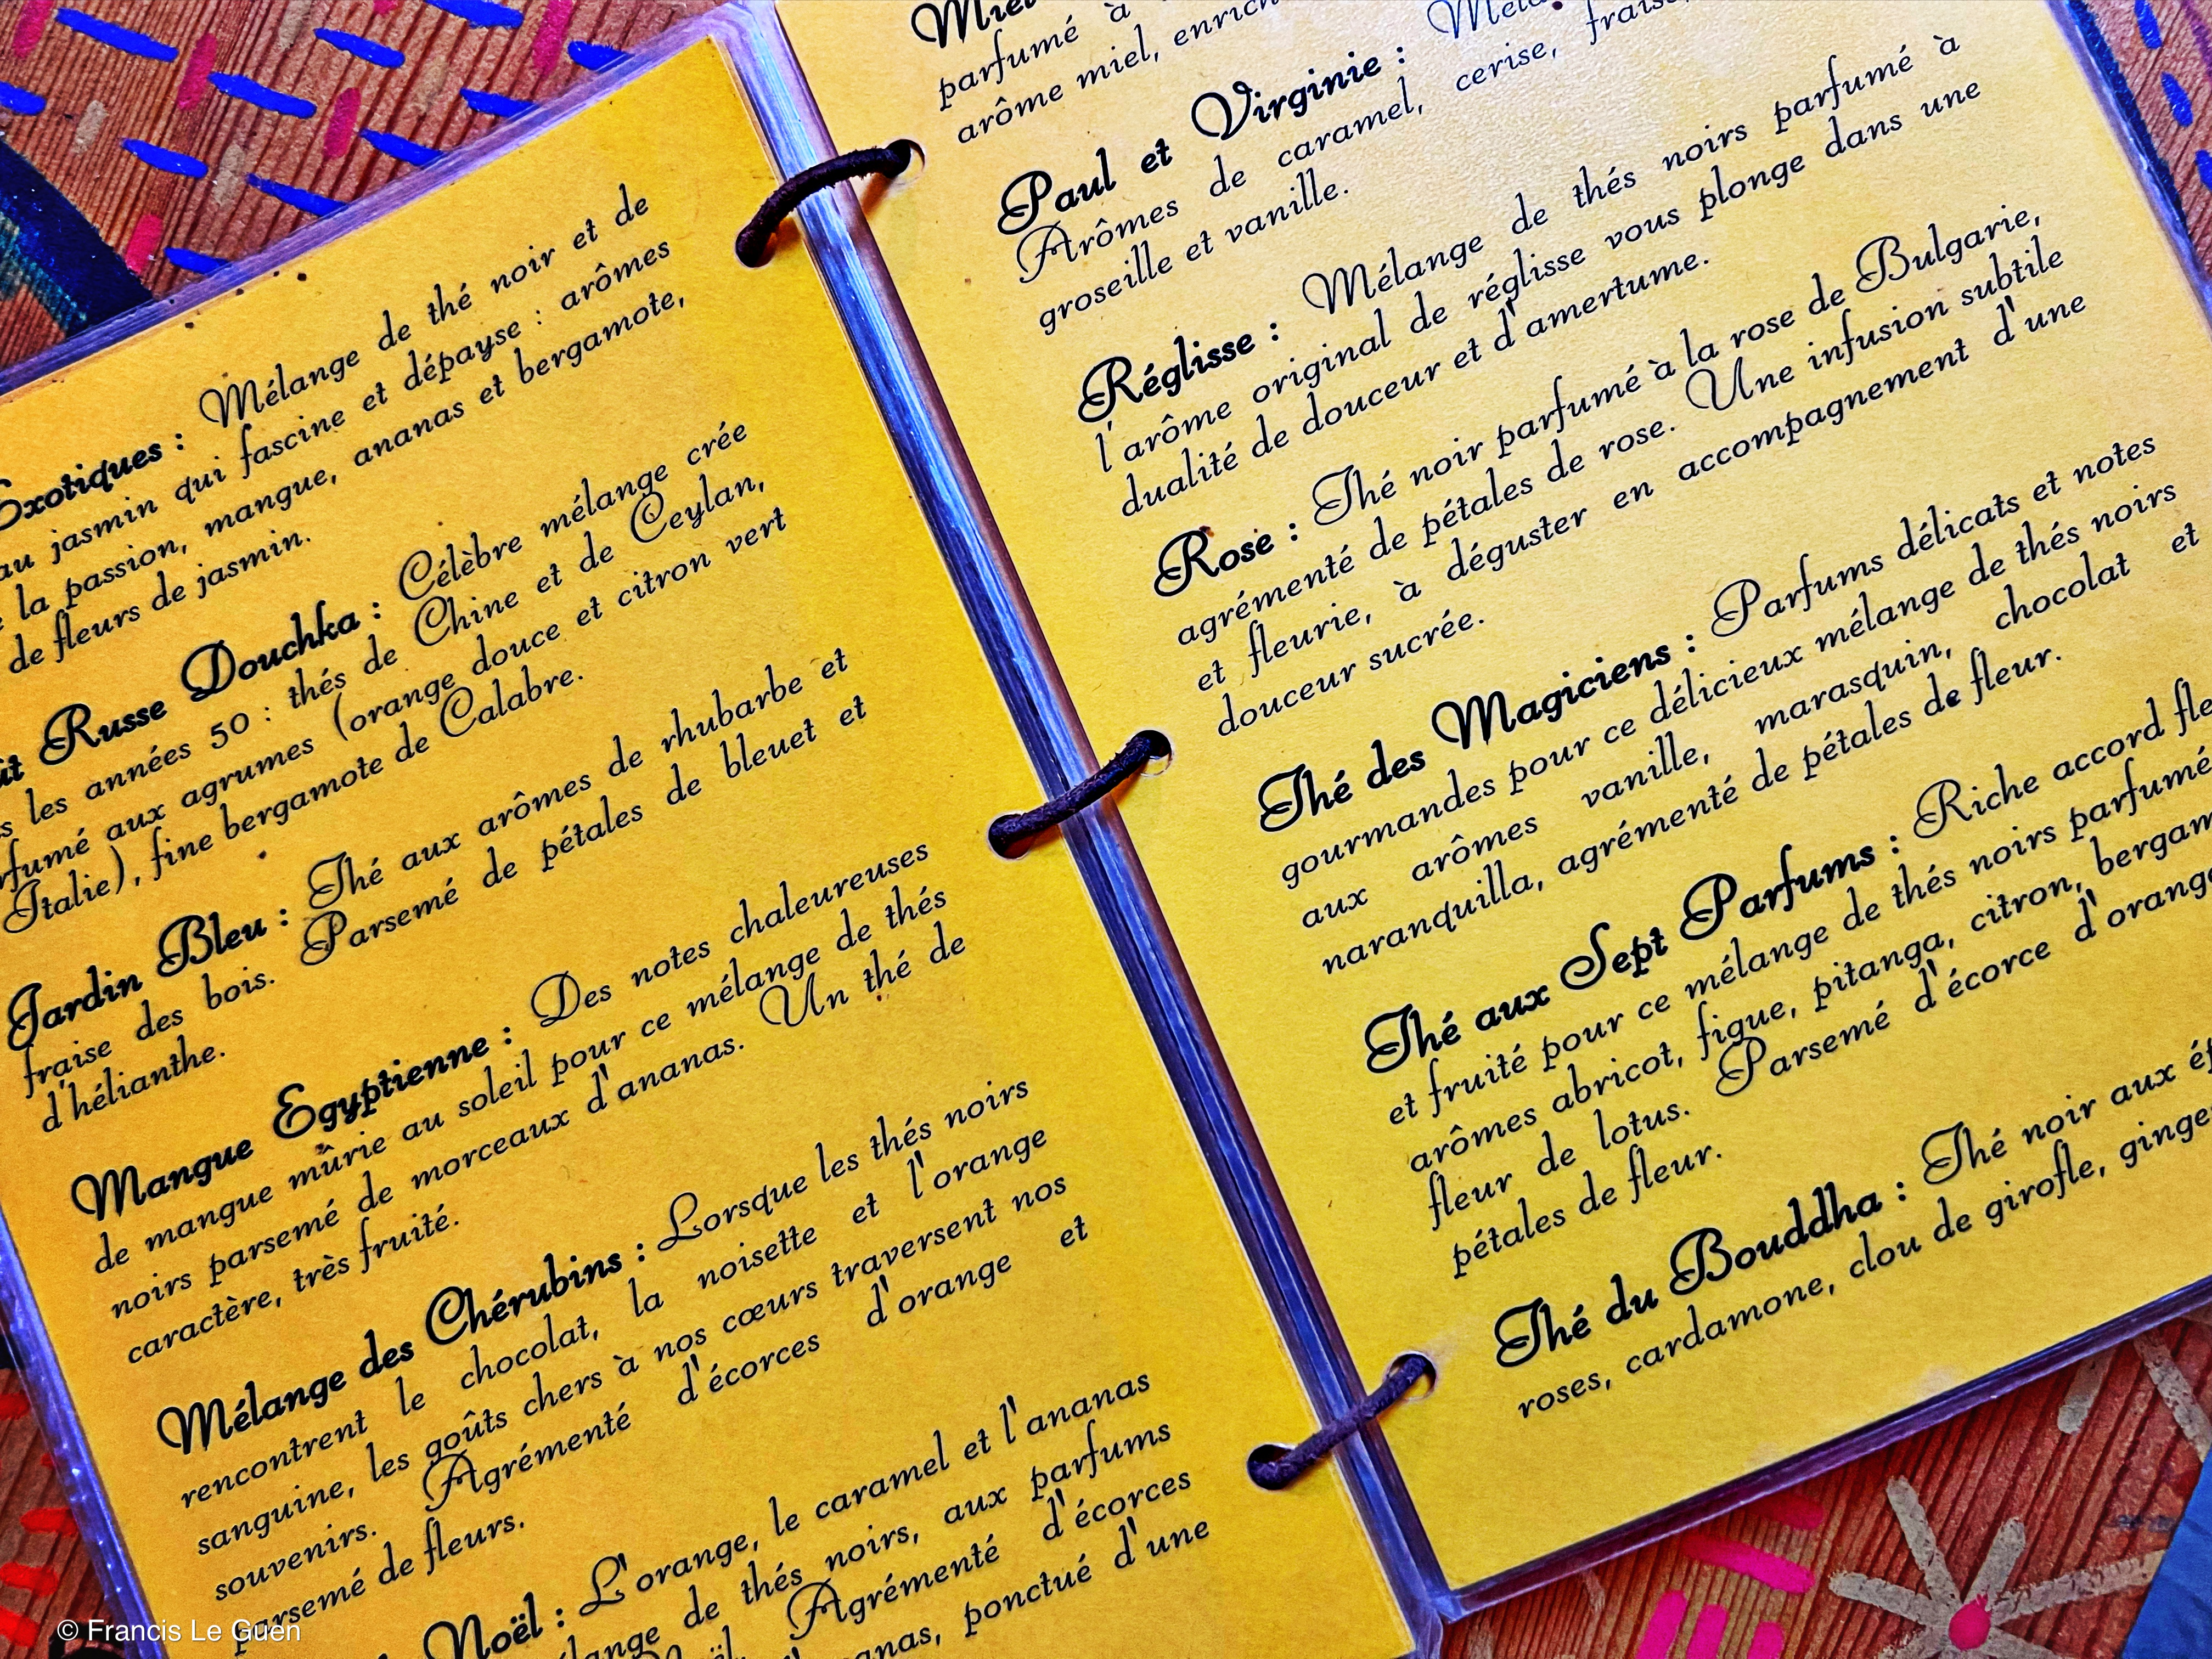 Exotiques : Mélange de thé noir et de
au jasmin qui fascine et dépayse : arômes
la passion, mangue, ananas et bergamote,
de fleurs de jasmin.
Russe Douchka : Célèbre mélange crée
les années 50 : thés de Chine et de Ceylan,
aux agrumes (orange douce et citron vert
Italie), fine bergamote de Calabre.
Jardin Bleu : Thé aux arômes de rhubarbe et
fraise des bois. Parsemé de pétales de bleuet et
d'hélianthe.
Mangue Egyptienne : Des notes chaleureuses
de mangue mûrie au soleil pour ce mélange de thés
noirs parsemé de morceaux d'ananas. Un thé de
caractère, très fruité.
Mélange des Chérubins : Lorsque les thés noirs
rencontrent le chocolat, la noisette et l'orange
sanguine, les goûts chers à nos cœurs traversent nos
souvenirs. Agrémenté d'écorces d'orange et
parsemé de fleurs.
Noël : L'orange, le caramel et l'ananas
de thés noirs, aux parfums
Agrémenté d'écorces
ponctué d'une
Miel
parfumé à
arôme miel,
Paul et Virginie :
Arômes de caramel, cerise,
groseille et vanille.
Réglisse : Mélange de thés noirs parfumé à
l'arôme original de réglisse vous plonge dans une
dualité de douceur et d'amertume.
Rose : Thé noir parfumé à la rose de Bulgarie,
agrémenté de pétales de rose. Une infusion subtile
et fleurie, à déguster en accompagnement d'une
douceur sucrée.
Thé des Magiciens : Parfums délicats et notes
gourmandes pour ce délicieux mélange de thés noirs
aux arômes vanille, marasquin, chocolat et
naranquilla, agrémenté de pétales de fleur.
Thé aux Sept Parfums : Riche accord
et fruité pour ce mélange de thés noirs
arômes abricot, figue, pitanga, citron,
fleur de lotus. Parsemé d'écorce
pétales de fleur.
Thé du Bouddha : Thé noir aux
roses, cardamone, clou de girofle,
© Francis Le Guen